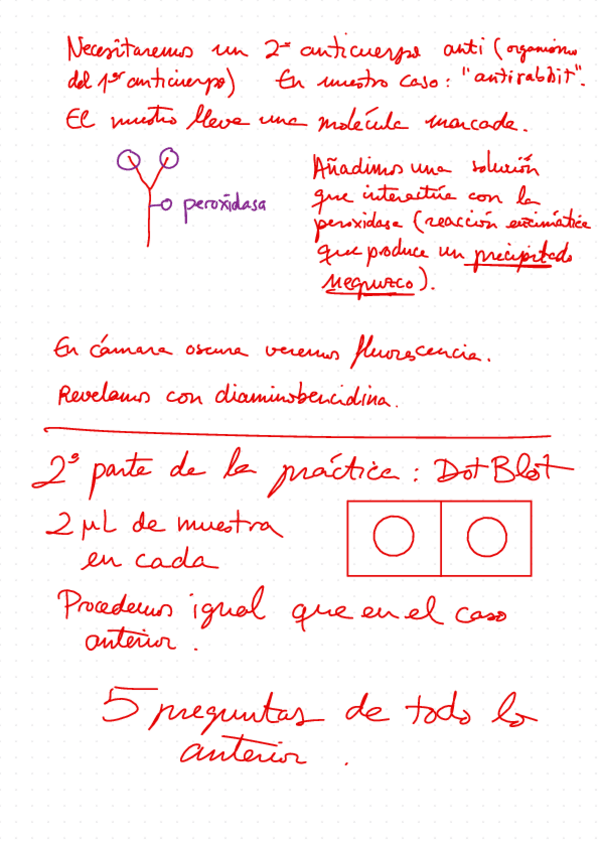 Necesitaremos un 2º anticuerpo anti (organismo
del 1er anticuerpo) En nuestro caso: "antirabbit".
El nuestro lleva una molécula marcada.
peroxidasa
Añadimos una solución
que interactúa con la
peroxidasa (reacción enzimática
que produce un precipitado
negruzco).
En cámara oscura veremos fluorescencia.
Revelamos con diaminobencidina.
2º parte de la práctica: Dot Blot
2 µL de muestra
en cada
Procedemos igual que en el caso
anterior.
5 preguntas de todo lo
anterior.